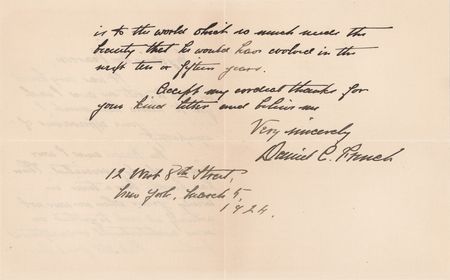 is to the world which so much needs the
beauty that he would have evolved in the
next ten or fifteen years.
Accept my cordial thanks for
your kind letter and believe me
Very sincerely
Daniel C. French
12 West 8th Street,
New York, March 5,
1924.